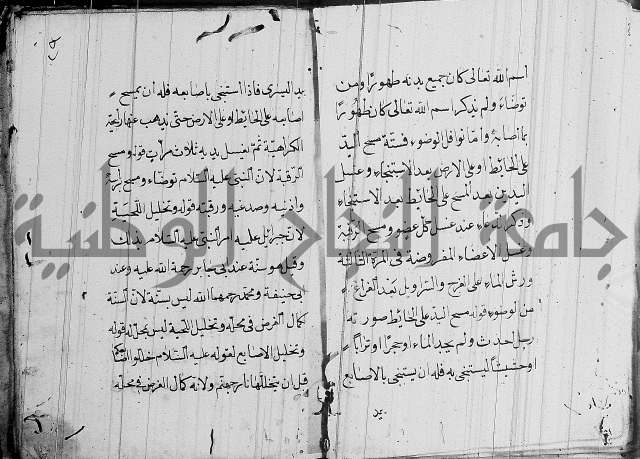 اسم الله تعالى كان جميع بدنه طهورا ومن
توضاء ولم يذكر اسم الله تعالى كان طهورا
بما اصابه واما نوافل الوضوء فستة مسح اليد
على الحائط او على الارض بعد الاستنجاء وغسل
اليدين بعد المسح على الحائط بعد الاستنجاء
وذكر الدعاء عند غسل كل عضو ومسح الرقبة
وغسل الاعضاء المفروضة في المرة الثالثة
ورش الماء على الفرج والسراويل بعد الفراغ
من الوضوء قوله مسح اليد على الحائط صورته
رجل احدث ولم يجد الماء او حجرا او ترابا
او حشيشا ليستنجي به فله ان يستنجي بالاصابع
يد
يد اليسرى فاذا استنجى باصابعه فله ان يمسح
اصابعه على الحائط او على الارض حتى يذهب عنها رايحة
الكراهية ثم يغسل يديه ثلاث مرات قوله ومسح
الرقبة لان النبي عليه السلام توضاء ومسح
واذنيه وصدغيه ورقبته قوله وتخليل اللحية
لان جبرائيل عليه امر النبي عليه السلام بذلك
وقيل هو سنة عند ابي رحمة الله عليه وعند
ابي حنيفة ومحمد رحمهما الله ليس بسنة لان السنة
كمال الفرض في محله وتخليل اللحية ليس بمحله قوله
وتخليل الاصابع لقوله عليه السلام خللوا
قبل ان يتخللها نار جهنم ولانه كمال الفرض في محله
جامعة النجاح الوطنية